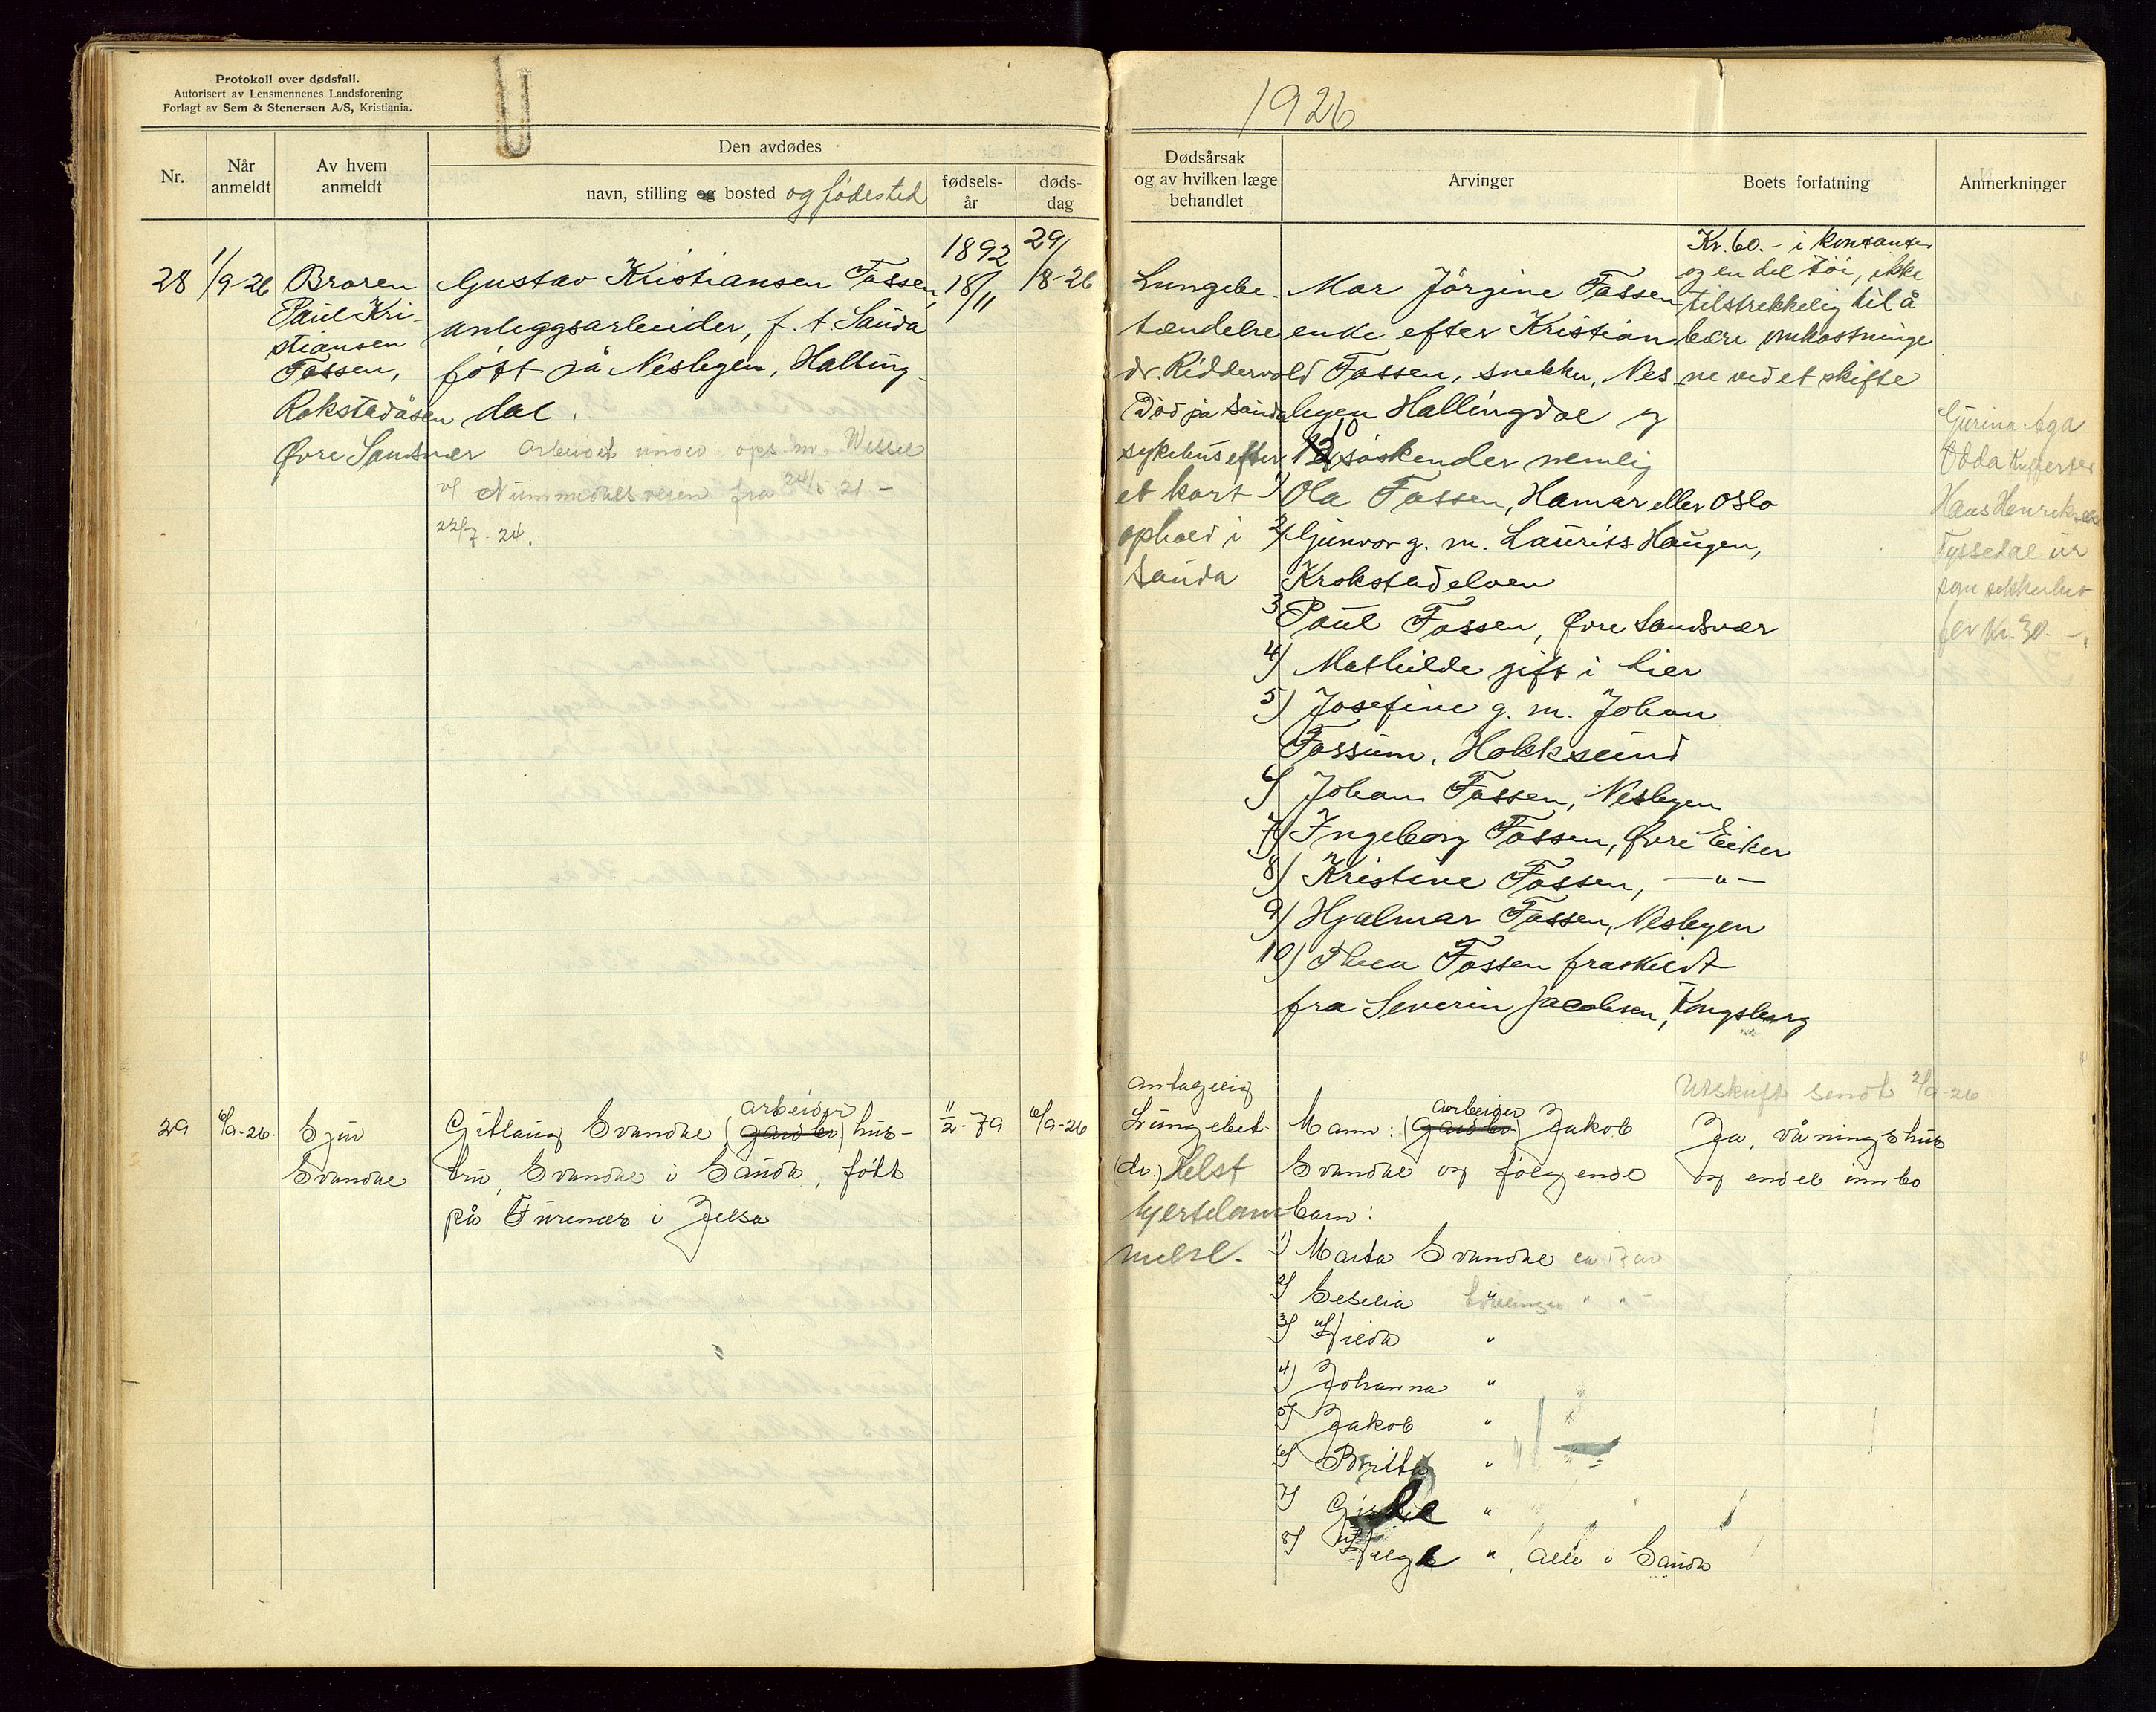 Protokoll over dødsfall.
Autorisert av Lensmennenes Landsforening
Forlagt av Sem & Stenersen A/S, Kristiania.
1926
Nr.
Når anmeldt
Av hvem anmeldt
Den avdødes
navn, stilling og bosted og fødested
fødsels-år
døds-dag
Dødsårsak og av hvilken læge behandlet
Arvinger
Boets forfatning
Anmerkninger
28
1/9-26
Broren
Paul Kri-
stiansen
Fossen,
Rokstadåsen
Øvre Sandsvær
Gustav Kristiansen Fossen,
anleggsarbeider, f. t. Sauda
født på Nesbyen, Halling-
dal.
Arbeidet under ops.m. Wessel
v/ Nummedalsveien fra 24/5 21 -
22/7-24.
1892
18/11
29/8-26
Lungebe-
tændelse
dr. Riddervold
Död på Sauda
sykehus efter
et kort
ophold i
Sauda
Mor Jörgine Fossen
enke efter Kristian
Fossen, snekker, Nes
byen Hallingdal og
10 søskender nemlig
1) Ola Fossen, Hamar eller Oslo
2) Gunvor g. m. Laurits Haugen,
Krokstadelven
3 Paul Fossen, Øvre Sandsvær
4) Mathilde gift i Lier
5) Josefine g. m. Johan
Fossum, Hokksund
6) Johan Fossen, Nesbyen
7) Ingeborg Fossen, Øvre Eiker
8) Kristine Fossen, — " —
9) Hjalmar Fossen, Nesbyen
10) Thea Fossen fraskildt
fra Severin Jacobsen, Kongsberg
Kr. 60.- i kontanter
og en del töi, ikke
tilstrekkelig til å
bære omkostninge
ne ved et skifte
Gurina Aga
Odda
Hans Henriksen
Tyssedal ur
som sikkerhet
for kr. 30.-
29
6/9-26.
Sjur
Svandal
Gitlaug Svandal (gardbr) arbeider hus-
tru, Svandal i Sauda, född
på Furenes i Jelsa
11/2-79
6/9-26
antagelig
Lungebet.
(dr.) Helst
hjertelam-
melse.
Mann: (gardbr.) arbeider Jakob
Svandal og følgende
barn:
1) Marta Svandal ca 17 år
2) Seselia " tvillinger " "
3) Hilda "
4) Johanna "
5) Jakob "
6) Brita "
7) "
8) Helge ", alle i Sauda
Utskrift sendt 2/9-26
Ja, våningshus
og endel innbo